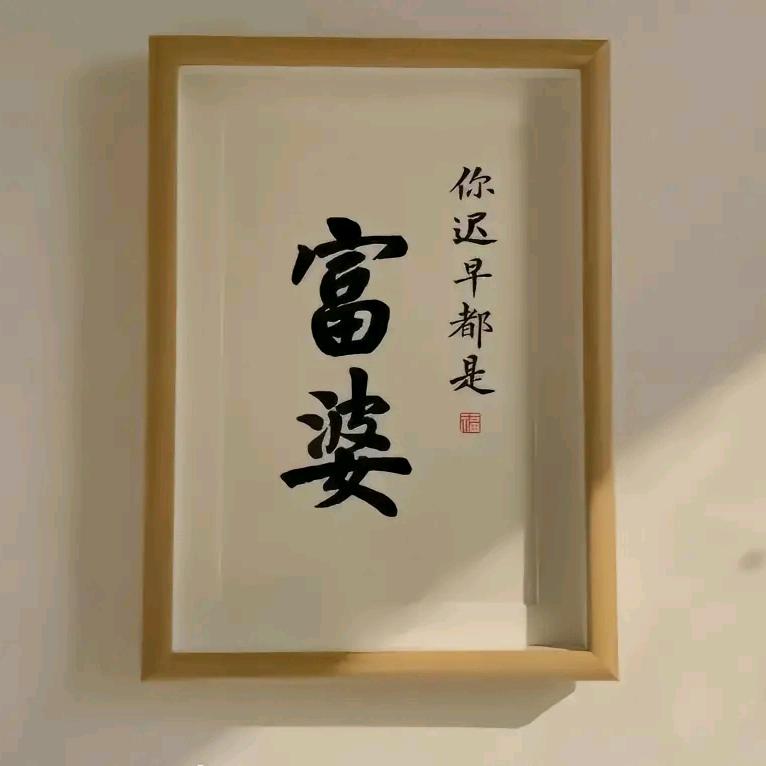 你迟早都是
富婆
福